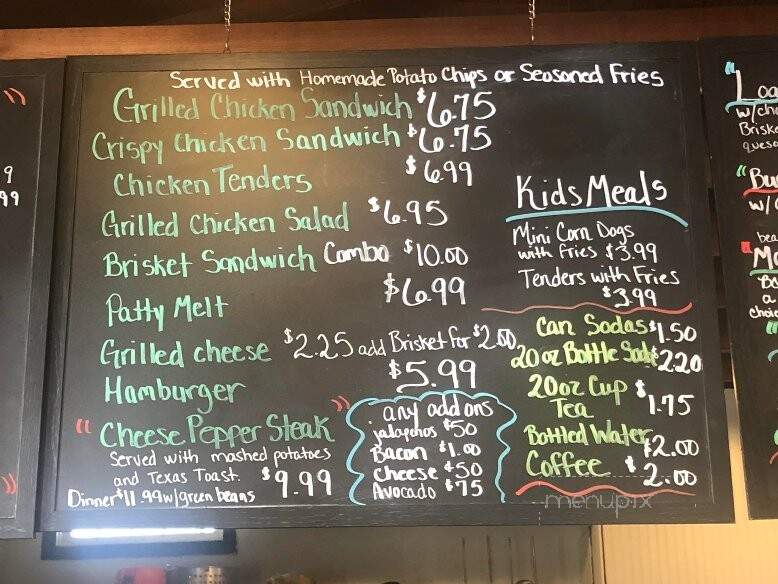 Served with Homemade Potato Chips or Seasoned Fries
Grilled Chicken Sandwich $6.75
Crispy Chicken Sandwich $6.75
Chicken Tenders $6.99
Grilled Chicken Salad $6.95
Brisket Sandwich Combo $10.00
Patty Melt $6.99
Grilled cheese $2.25 add Brisket for $2.00
Hamburger $5.99
"Cheese Pepper Steak"
Served with mashed potatoes
and Texas Toast. $9.99
Dinner $11.99 w/green beans
any add ons
jalapeños $50
Bacon $1.00
Cheese $50
Avocado $75
Kids Meals
Mini Corn Dogs
with fries $3.99
Tenders with Fries
$3.99
Can Sodas $1.50
20 oz Bottle Soda $2.20
20oz Cup
Tea $1.75
Bottled Water $2.00
Coffee $2.00
menupix
9
99
"Loa
w/ch
Briske
queso
"Bu
w/
bea
"Mo
a
choic